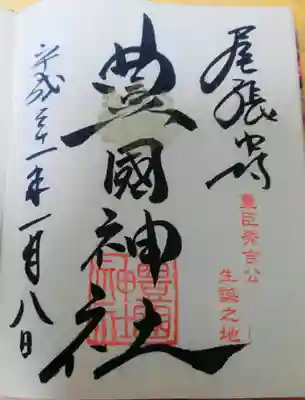 尾張中村
豊臣秀吉公
生誕之地
豊國神社
豊國
神社
平成三十一年一月八日